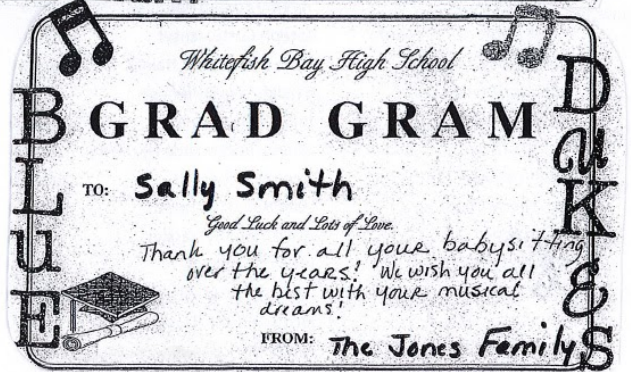 Whitefish Bay High School
GRAD GRAM
BLuE
DuKES
TO: Sally Smith
Good Luck and Lots of Love.
Thank you for all your babysitting
over the years! We wish you all
the best with your musical
dreams!
FROM: The Jones Family